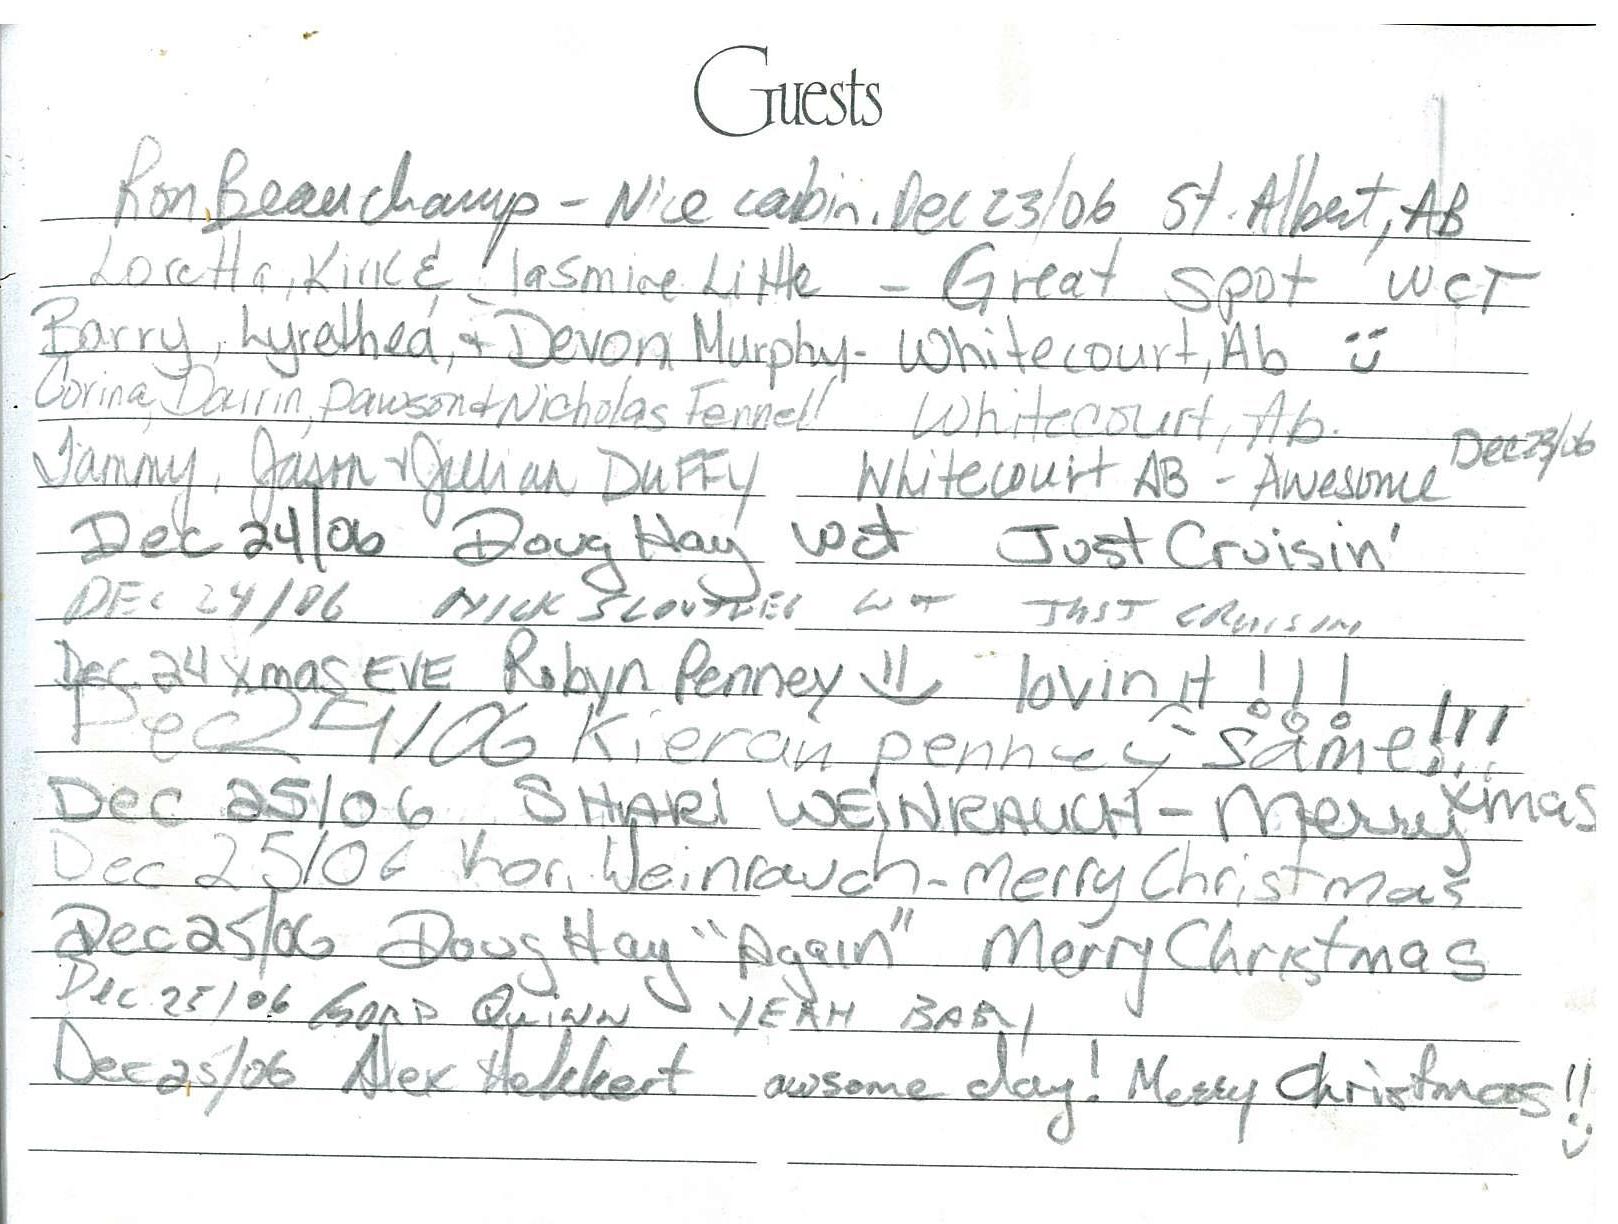 Guests
Ron Beauchamp - Nice cabin. Dec 23/06 St. Albert, AB
Loretta, Kirk & Jasmine Little - Great spot WCT
Barry, Lyrethea, + Devon Murphy - Whitecourt, Ab ü
Corina, Daurin, Dawson + Nicholas Fennell Whitecourt, Ab.
Tammy, Jason + Jillian DUFFY Whitecourt AB - Awesome Dec 23/06
Dec 24/06 Doug Hay wct Just Cruisin'
DEC 24/06 NICK WT JUST CRUISIN
Dec. 24 Xmas EVE Robyn Penney lovin it !!!
Dec 24/06 Kieran penney same!!!
Dec 25/06 SHARI WEINRAUCH - Merry Xmas
Dec 25/06 Kori Weinrauch - Merry Christmas
Dec 25/06 Doug Hay "Again" Merry Christmas
Dec 25/06 GORD QUINN YEAH BABY
Dec 25/06 Alex Hekkert awsome day! Merry Christmas!!